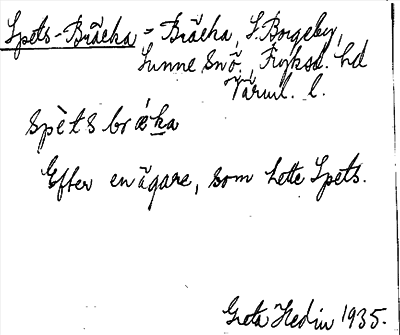 Spets-Bråcka = Bråcka, S. Borgeby,
Sunne snő, Fryksd. hd
Värml. l.
spèts bråka
Efter en ägare, som hette Spets.
Greta Hedin 1935.